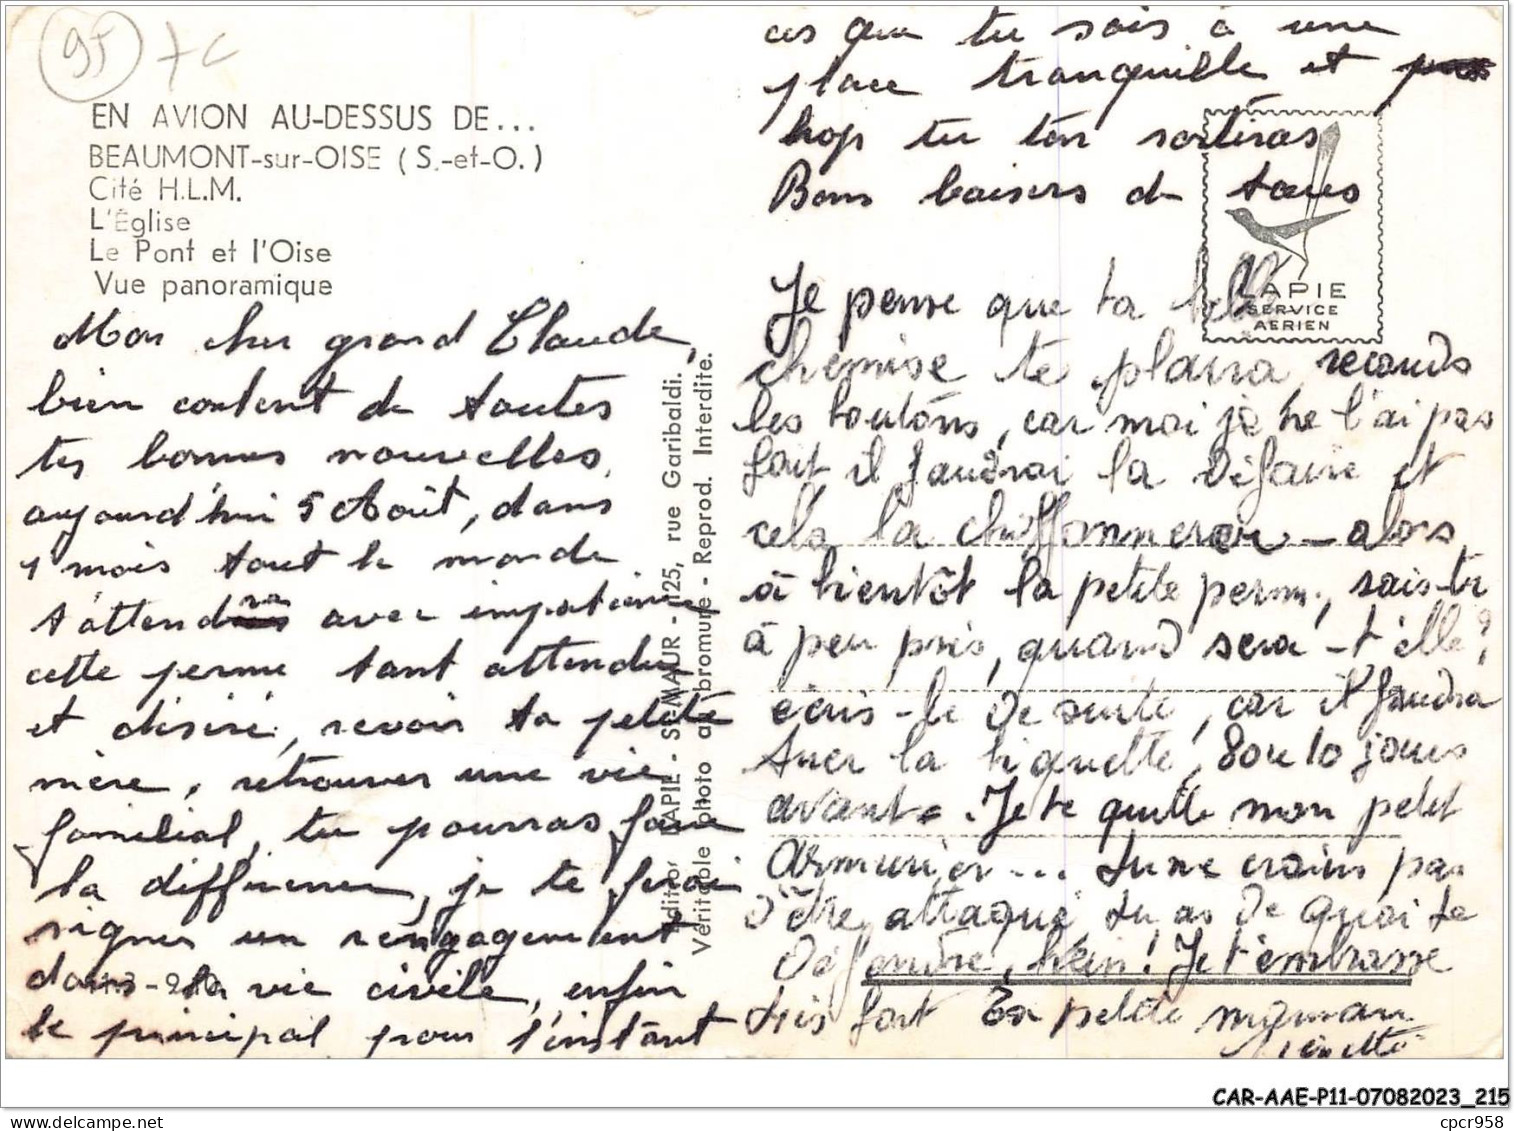 95 7c
EN AVION AU-DESSUS DE...
BEAUMONT-sur-OISE (S.-et-O.)
Cité H.L.M.
L'Église
Le Pont et l'Oise
Vue panoramique
Mon cher grand Claude,
bien content de toutes
tes bonnes nouvelles,
aujourd'hui 5 Août, dans
1 mois tout le monde
t'attendra avec impatience
cette perme tant attendue
et désiré, revoir ta petite
mère, retrouver une vie
familial, tu pourras faire
la différence, je te ferai
signer un rengagement
dans la vie civile, enfin
le principal pour l'instant
Editions LAPIE - ST-MAUR - 125, rue Garibaldi.
Véritable photo au bromure - Reprod. Interdite.
ces que tu sois à une
place tranquille et
hop tu t'en sortiras
Bons baisers de tous
LAPIE
SERVICE
AERIEN
Je pense que ta belle
chemise te plaira, recouds
les boutons, car moi je ne l'ai pas
fait, il faudrai la défaire et
cela la chiffonnerai - alors
à bientôt la petite perm., sais-tu
à peu près, quand sera-t'elle?
écris-le de suite, car il faudra
tuer la biquette, 8 ou 10 jours
avant. Je te quitte mon petit
armurier... tu ne crains pas
d'être attaqué, tu as de quoi te
défendre, hein! Je t'embrasse
très fort Ta petite maman
Ginette
CAR-AAE-P11-07082023_215
cpcr958